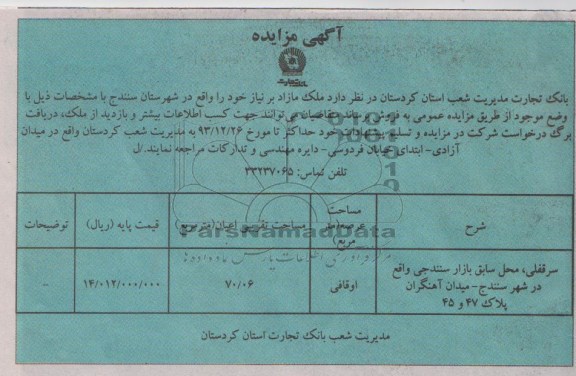 آگهی مزایده
بانک تجارت مدیریت شعب استان کردستان در نظر دارد ملک مازاد بر نیاز خود را واقع در شهرستان سنندج با مشخصات ذیل با
وضع موجود از طریق مزایده عمومی به فروش برساند. متقاضیان می توانند جهت کسب اطلاعات بیشتر و بازدید از ملک، دریافت
برگ درخواست شرکت در مزایده و تسلیم پیشنهادات خود حداکثر تا مورخ ۹۳/۱۲/۲۶ به مدیریت شعب کردستان واقع در میدان
آزادی- ابتدای خیابان فردوسی- دایره مهندسی و تدارکات مراجعه نمایند./ل
تلفن تماس: ۳۳۲۳۷۰۶۵
شرح
مساحت عرصه(متر مربع)
مساحت تقریبی اعیان(متر مربع)
قیمت پایه (ریال)
توضیحات
سرقفلی، محل سابق بازار سنندجی واقع
در شهر سنندج- میدان آهنگران
پلاک ۴۷ و ۴۵
اوقافی
۷۰/۰۶
۱۴/۰۱۲/۰۰۰/۰۰۰
-
ParsNamadData
مدیریت شعب بانک تجارت استان کردستان